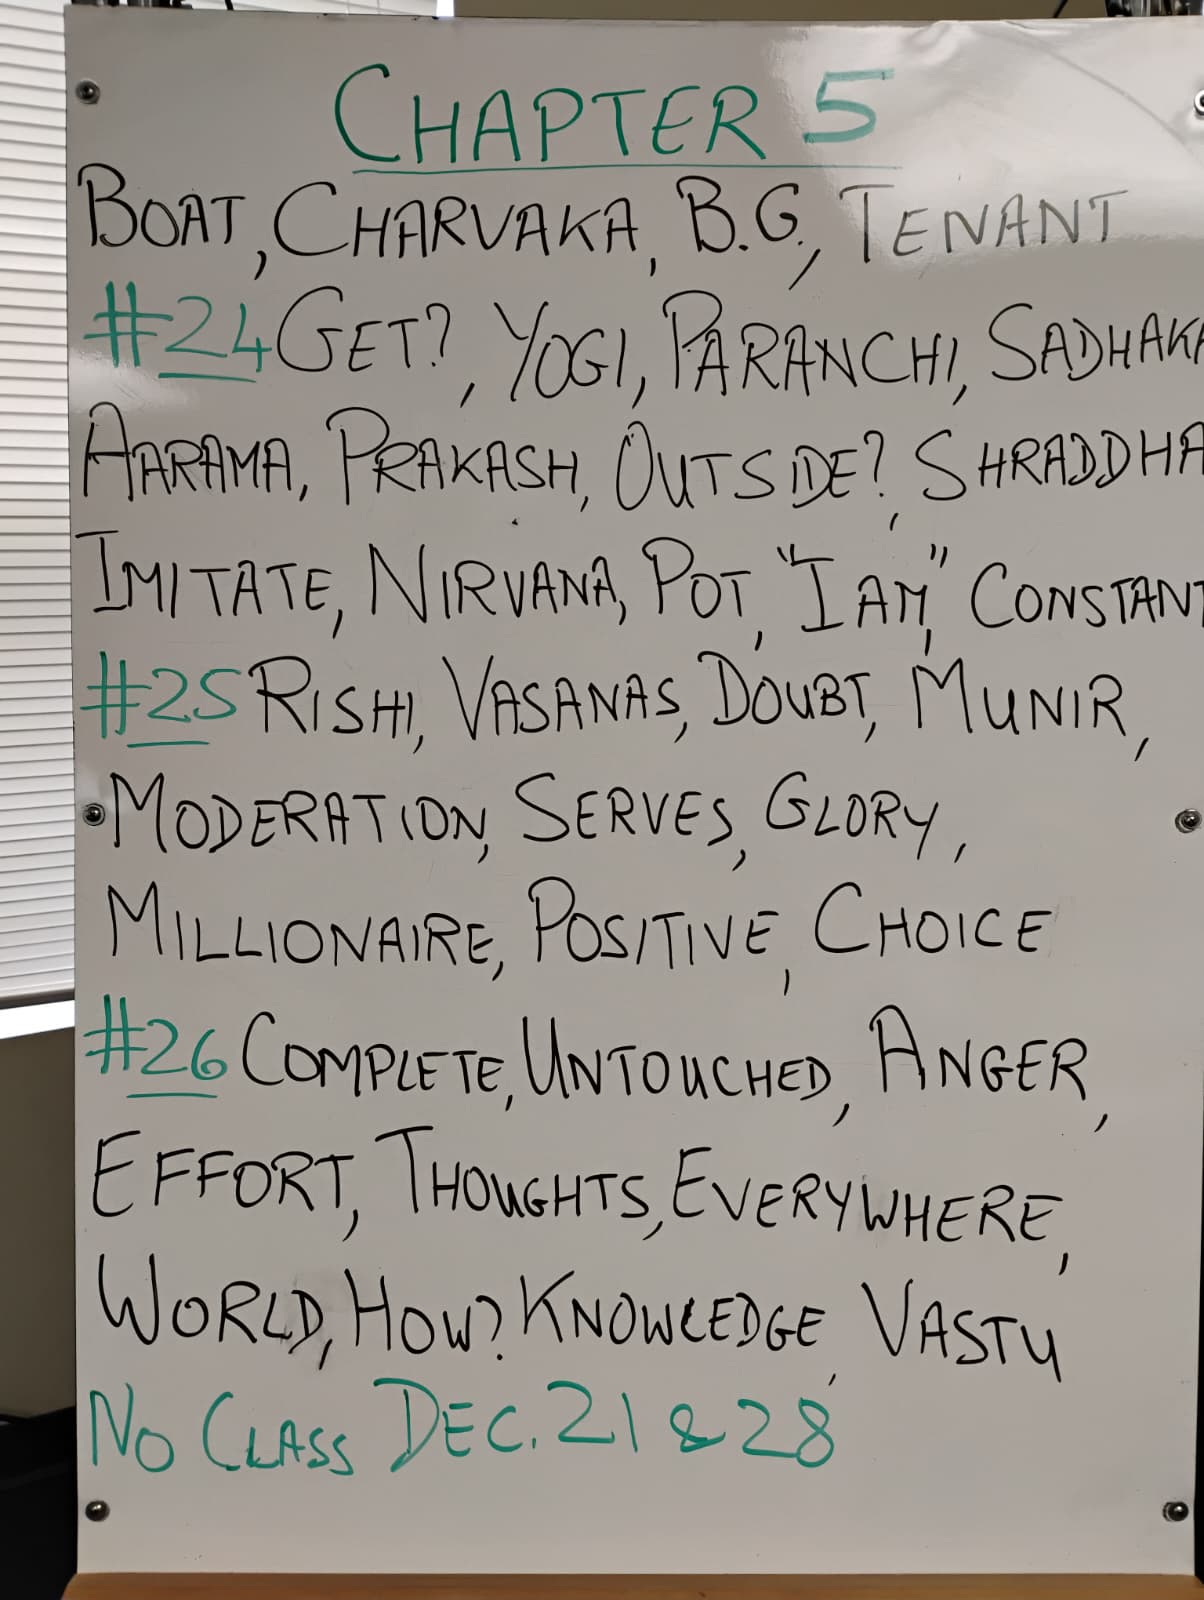 CHAPTER 5
BOAT, CHARVAKA, B.G., TENANT
#24 GET?, YOGI, PARANCHI, SADHAKA
AARAMA, PRAKASH, OUTSIDE?, SHRADDHA
IMITATE, NIRVANA, POT, "I AM", CONSTANT
#25 RISHI, VASANAS, DOUBT, MUNIR,
MODERATION, SERVES, GLORY,
MILLIONAIRE, POSITIVE, CHOICE
#26 COMPLETE, UNTOUCHED, ANGER,
EFFORT, THOUGHTS, EVERYWHERE,
WORLD, HOW? KNOWLEDGE, VASTU
NO CLASS DEC. 21 & 28